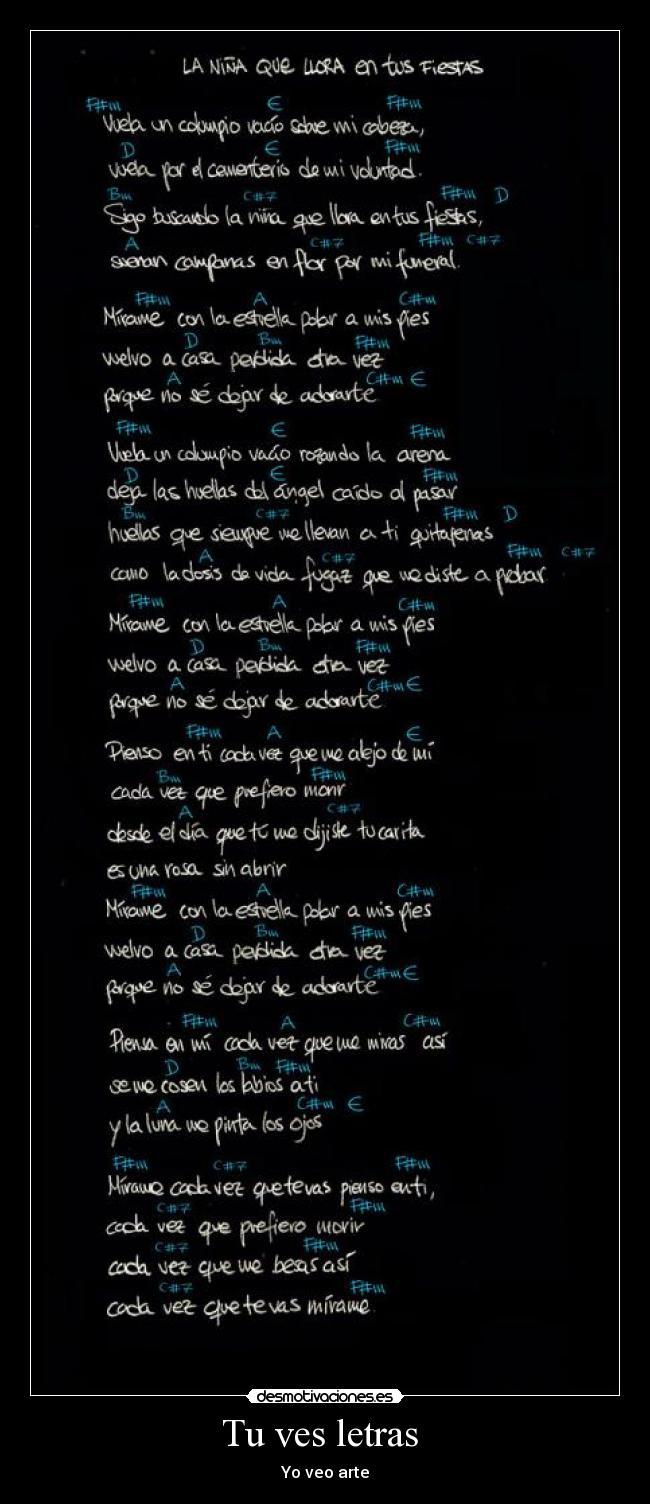 LA NIÑA QUE LLORA en tus FIESTAS
F#m E F#m
Vuela un columpio vacío sobre mi cabeza,
D E F#m
vuela por el cementerio de mi voluntad.
Bm C#7 F#m D
Sigo buscando la niña que llora en tus fiestas,
A C#7 F#m C#7
suenan campanas en flor por mi funeral.
F#m A C#m
Mírame con la estrella polar a mis pies
D Bm F#m
vuelvo a casa perdida otra vez
A C#m E
porque no sé dejar de adorarte
F#m E F#m
Vuela un columpio vacío rozando la arena
D E F#m
deja las huellas del ángel caído al pasar
Bm C#7 F#m D
huellas que siempre me llevan a ti quitapenas
A C#7 F#m C#7
como la dosis de vida fugaz que me diste a probar
F#m A C#m
Mírame con la estrella polar a mis pies
D Bm F#m
vuelvo a casa perdida otra vez
A C#m E
porque no sé dejar de adorarte
F#m A E
Pienso en ti cada vez que me alejo de mí
Bm F#m
cada vez que prefiero morir
A C#7
desde el día que tú me dijiste tu carita
es una rosa sin abrir
F#m A C#m
Mírame con la estrella polar a mis pies
D Bm F#m
vuelvo a casa perdida otra vez
A C#m E
porque no sé dejar de adorarte
F#m A C#m
Piensa en mí cada vez que me miras así
D Bm F#m
se me cosen los labios a ti
A C#m E
y la luna me pinta los ojos
F#m C#7 F#m
Mírame cada vez que te vas pienso en ti,
C#7 F#m
cada vez que prefiero morir
C#7 F#m
cada vez que me besas así
C#7 F#m
cada vez que te vas mírame
desmotivaciones.es
Tu ves letras
Yo veo arte